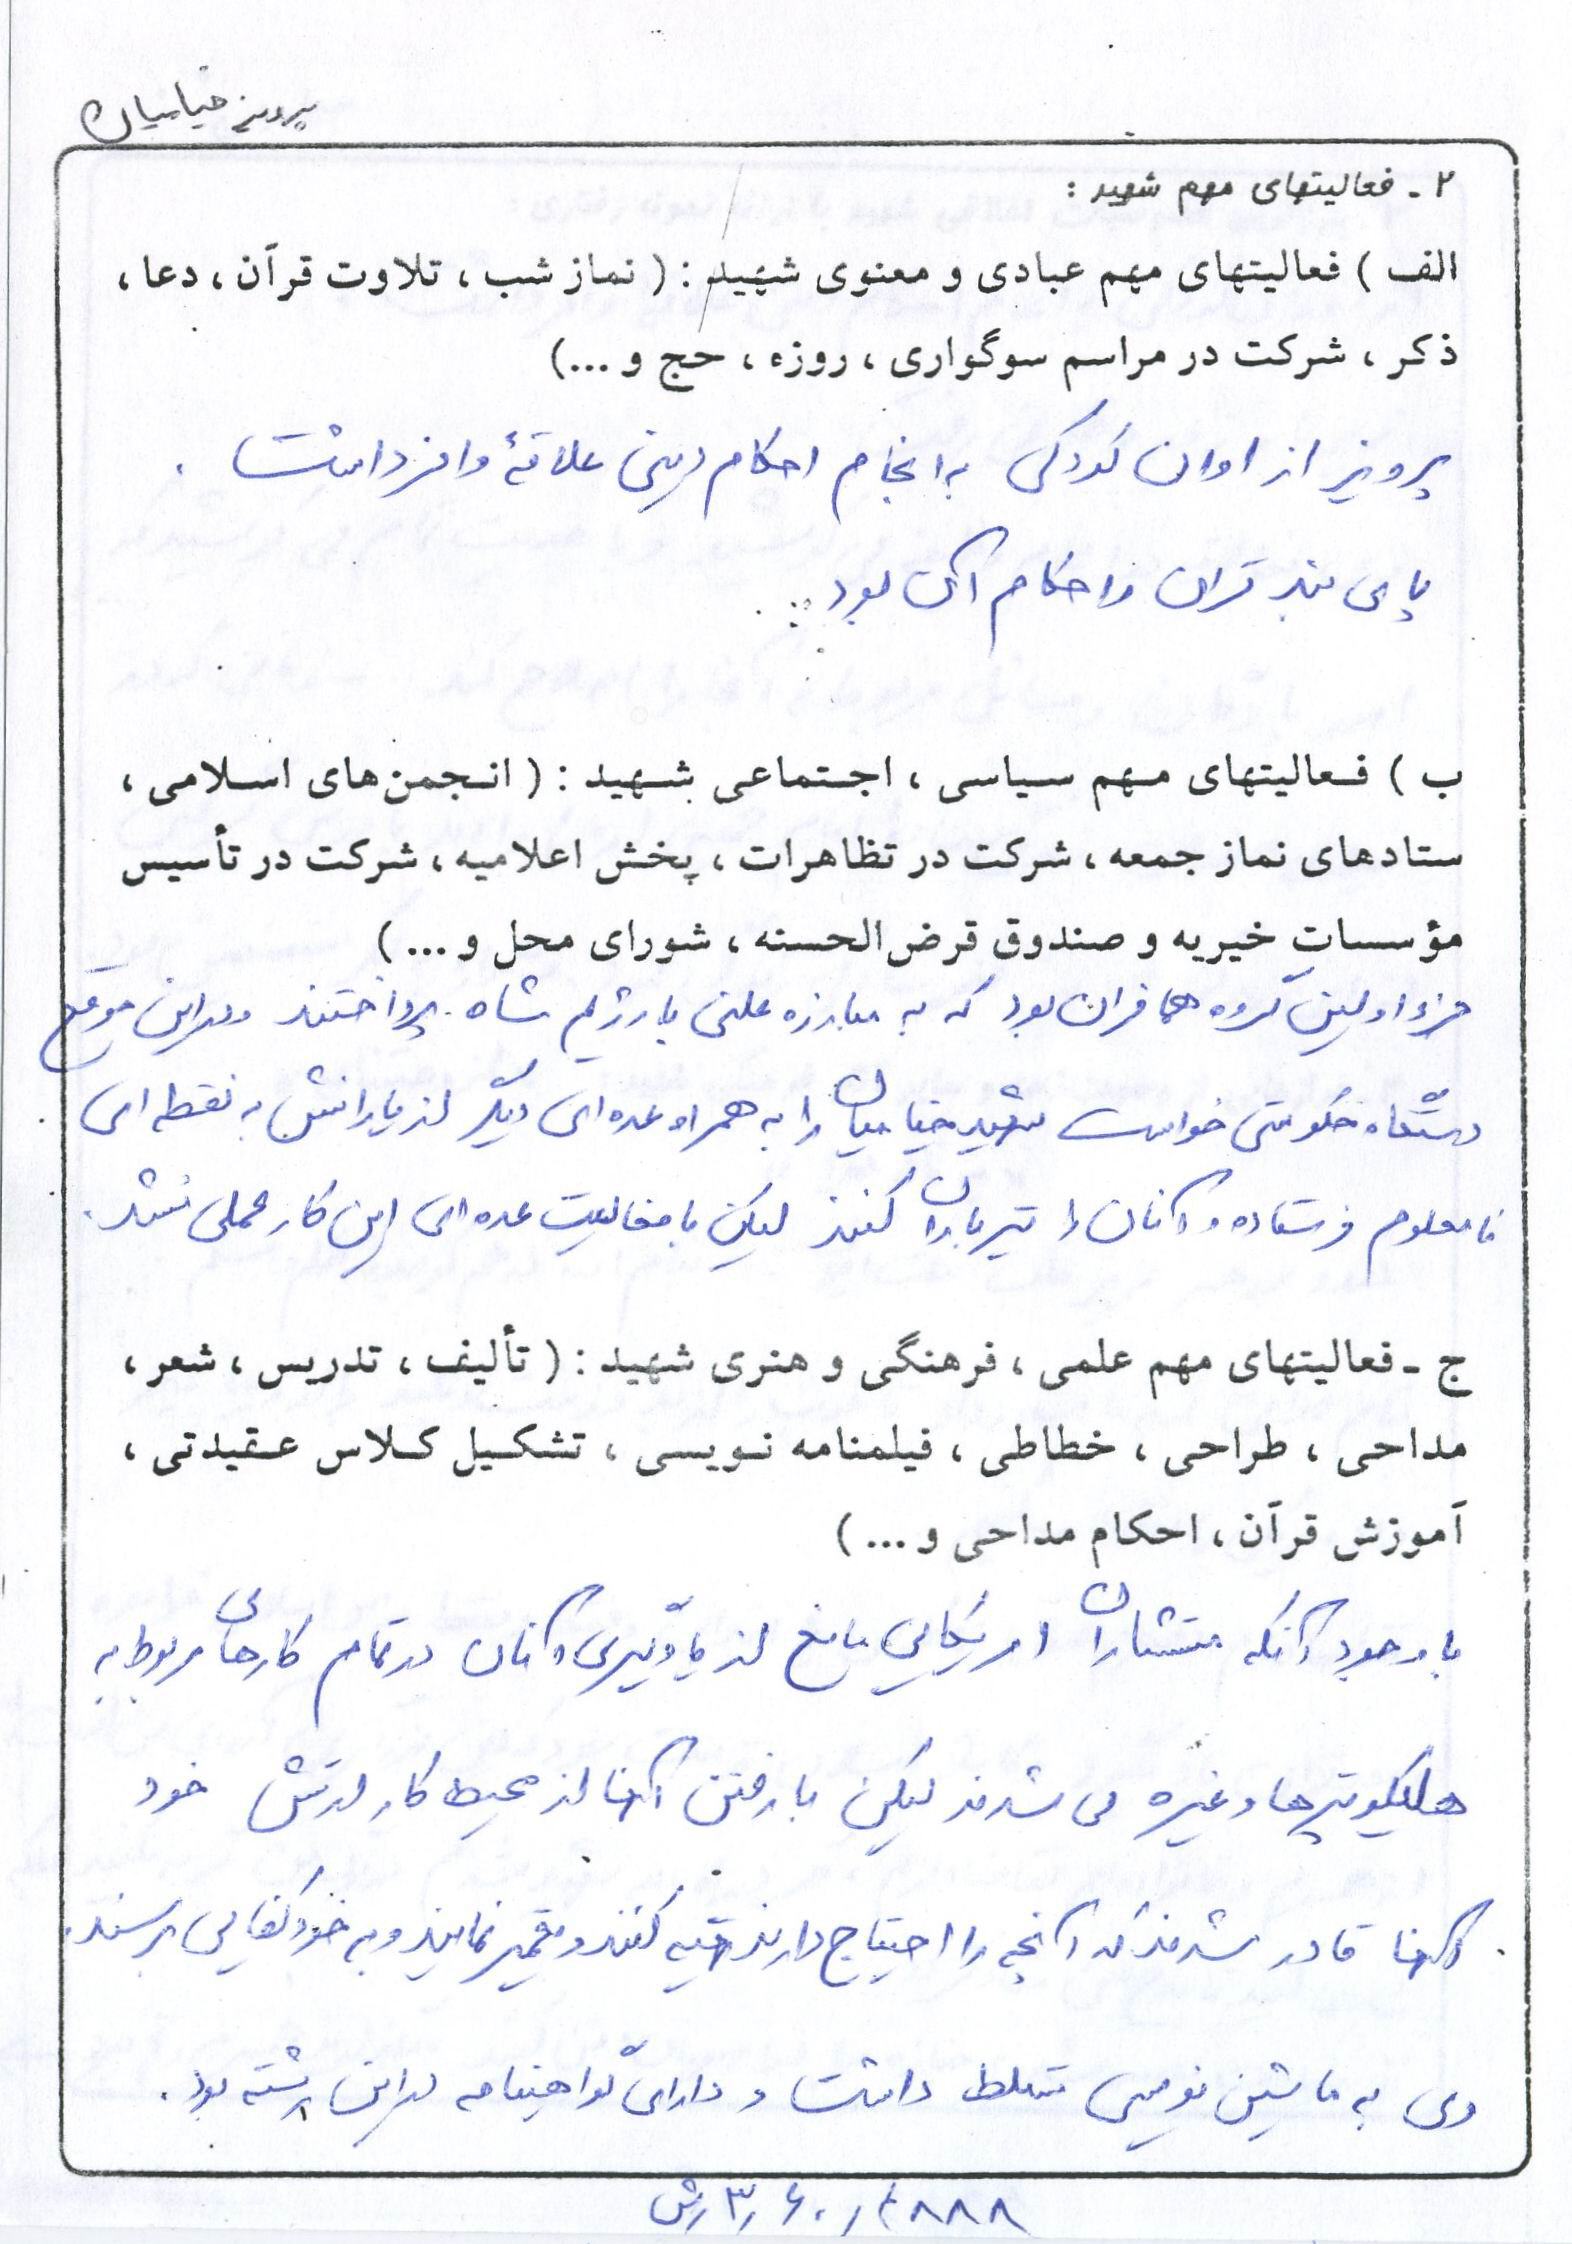 پرویز خیامیان
۲ - فعالیتهای مهم شهید :
الف ) فعالیتهای مهم عبادی و معنوی شهید : ( نماز شب ، تلاوت قرآن ، دعا ،
ذکر ، شرکت در مراسم سوگواری ، روزه ، حج و ...)
پرویز از اوان کودکی به انجام احکام دینی علاقهٔ وافر داشت .
پای بند قران و احکام آن بود .
ب ) فعالیتهای مهم سیاسی ، اجتماعی شهید : ( انجمن‌های اسلامی ،
ستادهای نماز جمعه ، شرکت در تظاهرات ، پخش اعلامیه ، شرکت در تأسیس
مؤسسات خیریه و صندوق قرض‌الحسنه ، شورای محل و ... )
جزء اولین گروه همافران بود که به مبارزه علنی با رژیم شاه پرداختند و در این موقع
دستگاه حکومتی خواست شهید خیامیان را به همراه عده‌ای دیگر از یارانش به نقطه‌ای
نامعلوم فرستاده و آنان را تیرباران کنند لیکن با فعالیت عده‌ای این کار عملی نشد .
ج - فعالیتهای مهم علمی ، فرهنگی و هنری شهید : ( تألیف ، تدریس ، شعر ،
مداحی ، طراحی ، خطاطی ، فیلمنامه نویسی ، تشکیل کلاس عقیدتی ،
آموزش قرآن ، احکام مداحی و ... )
با وجود آنکه مستشاران امریکایی مانع از یادگیری آنان در تمام کارهای مربوط به
هلیکوپترها و غیره می شدند لیکن با رفتن آنها از محیط کار ارتش خود
آنها قادر شدند که آنچه را احتیاج دارند تهیه کنند و تعمیر نمایند و به خودکفایی برسند .
وی به ماشین نویسی تسلط داشت و دارای گواهینامه در این رشته بود .